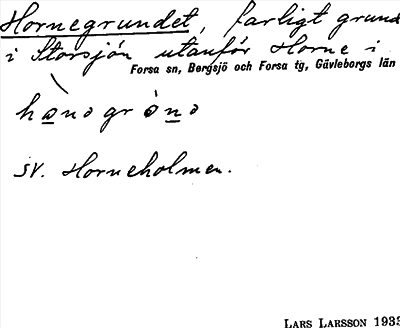 Hornegrundet, farligt grund
i Storsjön utanför Horne i
Forsa sn, Bergsjö och Forsa tg, Gävleborgs län
sv. Horneholmen.
LARS LARSSON 1933